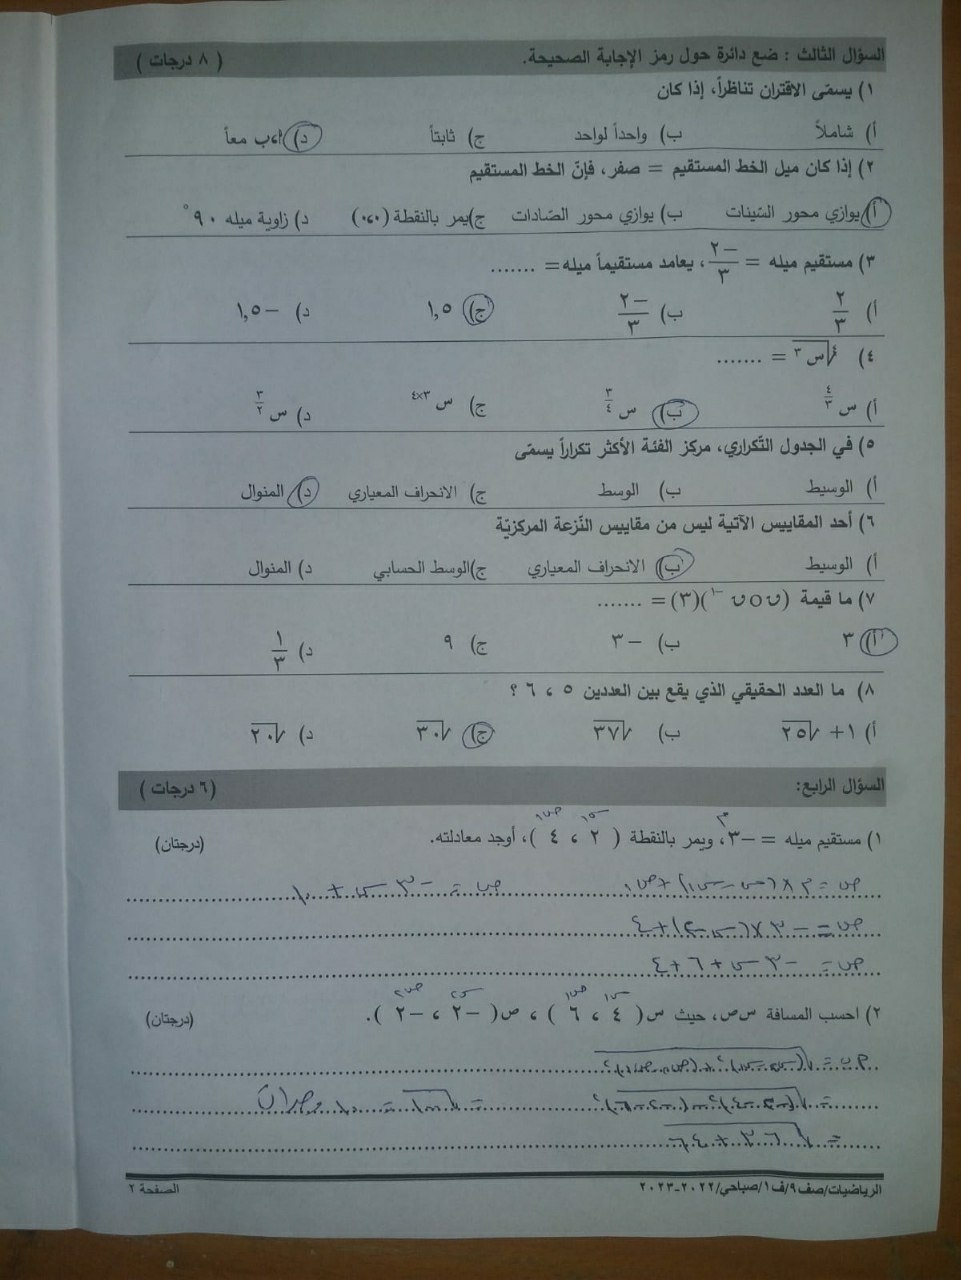 السؤال الثالث : ضع دائرة حول رمز الإجابة الصحيحة. ( ٨ درجات )
١) يسمّى الاقتران تناظراً، إذا كان
أ) شاملاً ب) واحداً لواحد ج) ثابتاً د) أ،ب معاً
٢) إذا كان ميل الخط المستقيم = صفر، فإنّ الخط المستقيم
أ) يوازي محور السّينات ب) يوازي محور الصّادات ج) يمر بالنقطة (٠،٠) د) زاوية ميله ٩٠°
٣) مستقيم ميله = −٢/٣، يعامد مستقيماً ميله= .......
أ) ٢/٣ ب) −٢/٣ ج) ١,٥ د) −١,٥
٤) ⁴√س³ = .......
أ) س^(٤/٣) ب) س^(٣/٤) ج) س^(٣×٤) د) س^(٣/٢)
٥) في الجدول التّكراري، مركز الفئة الأكثر تكراراً يسمّى
أ) الوسيط ب) الوسط ج) الانحراف المعياري د) المنوال
٦) أحد المقاييس الآتية ليس من مقاييس النّزعة المركزيّة
أ) الوسيط ب) الانحراف المعياري ج) الوسط الحسابي د) المنوال
٧) ما قيمة (ن o ن⁻¹)(٣) = .......
أ) ٣ ب) −٣ ج) ٩ د) ١/٣
٨) ما العدد الحقيقي الذي يقع بين العددين ٥ ، ٦ ؟
أ) ١+ √٢٥ ب) √٣٧ ج) √٣٠ د) √٢٠
السؤال الرابع: ( ٦ درجات )
١) مستقيم ميله = −٣، ويمر بالنقطة ( ٢ ، ٤ )، أوجد معادلته. (درجتان)
ص = م × (س − س١) + ص١ ص = −٣س + ١٠
ص = −٣ × (س − ٢) + ٤
ص = −٣س + ٦ + ٤
٢) احسب المسافة س ص، حيث س( ٤ ، ٦ ) ، ص( −٢ ، −٢ ). (درجتان)
= √١٠٠ = ١٠ وحدات
= √٣٦ + ٦٤
الرياضيات/صف٩/ف١/صباحي/٢٠٢٢-٢٠٢٣ الصفحة ٢